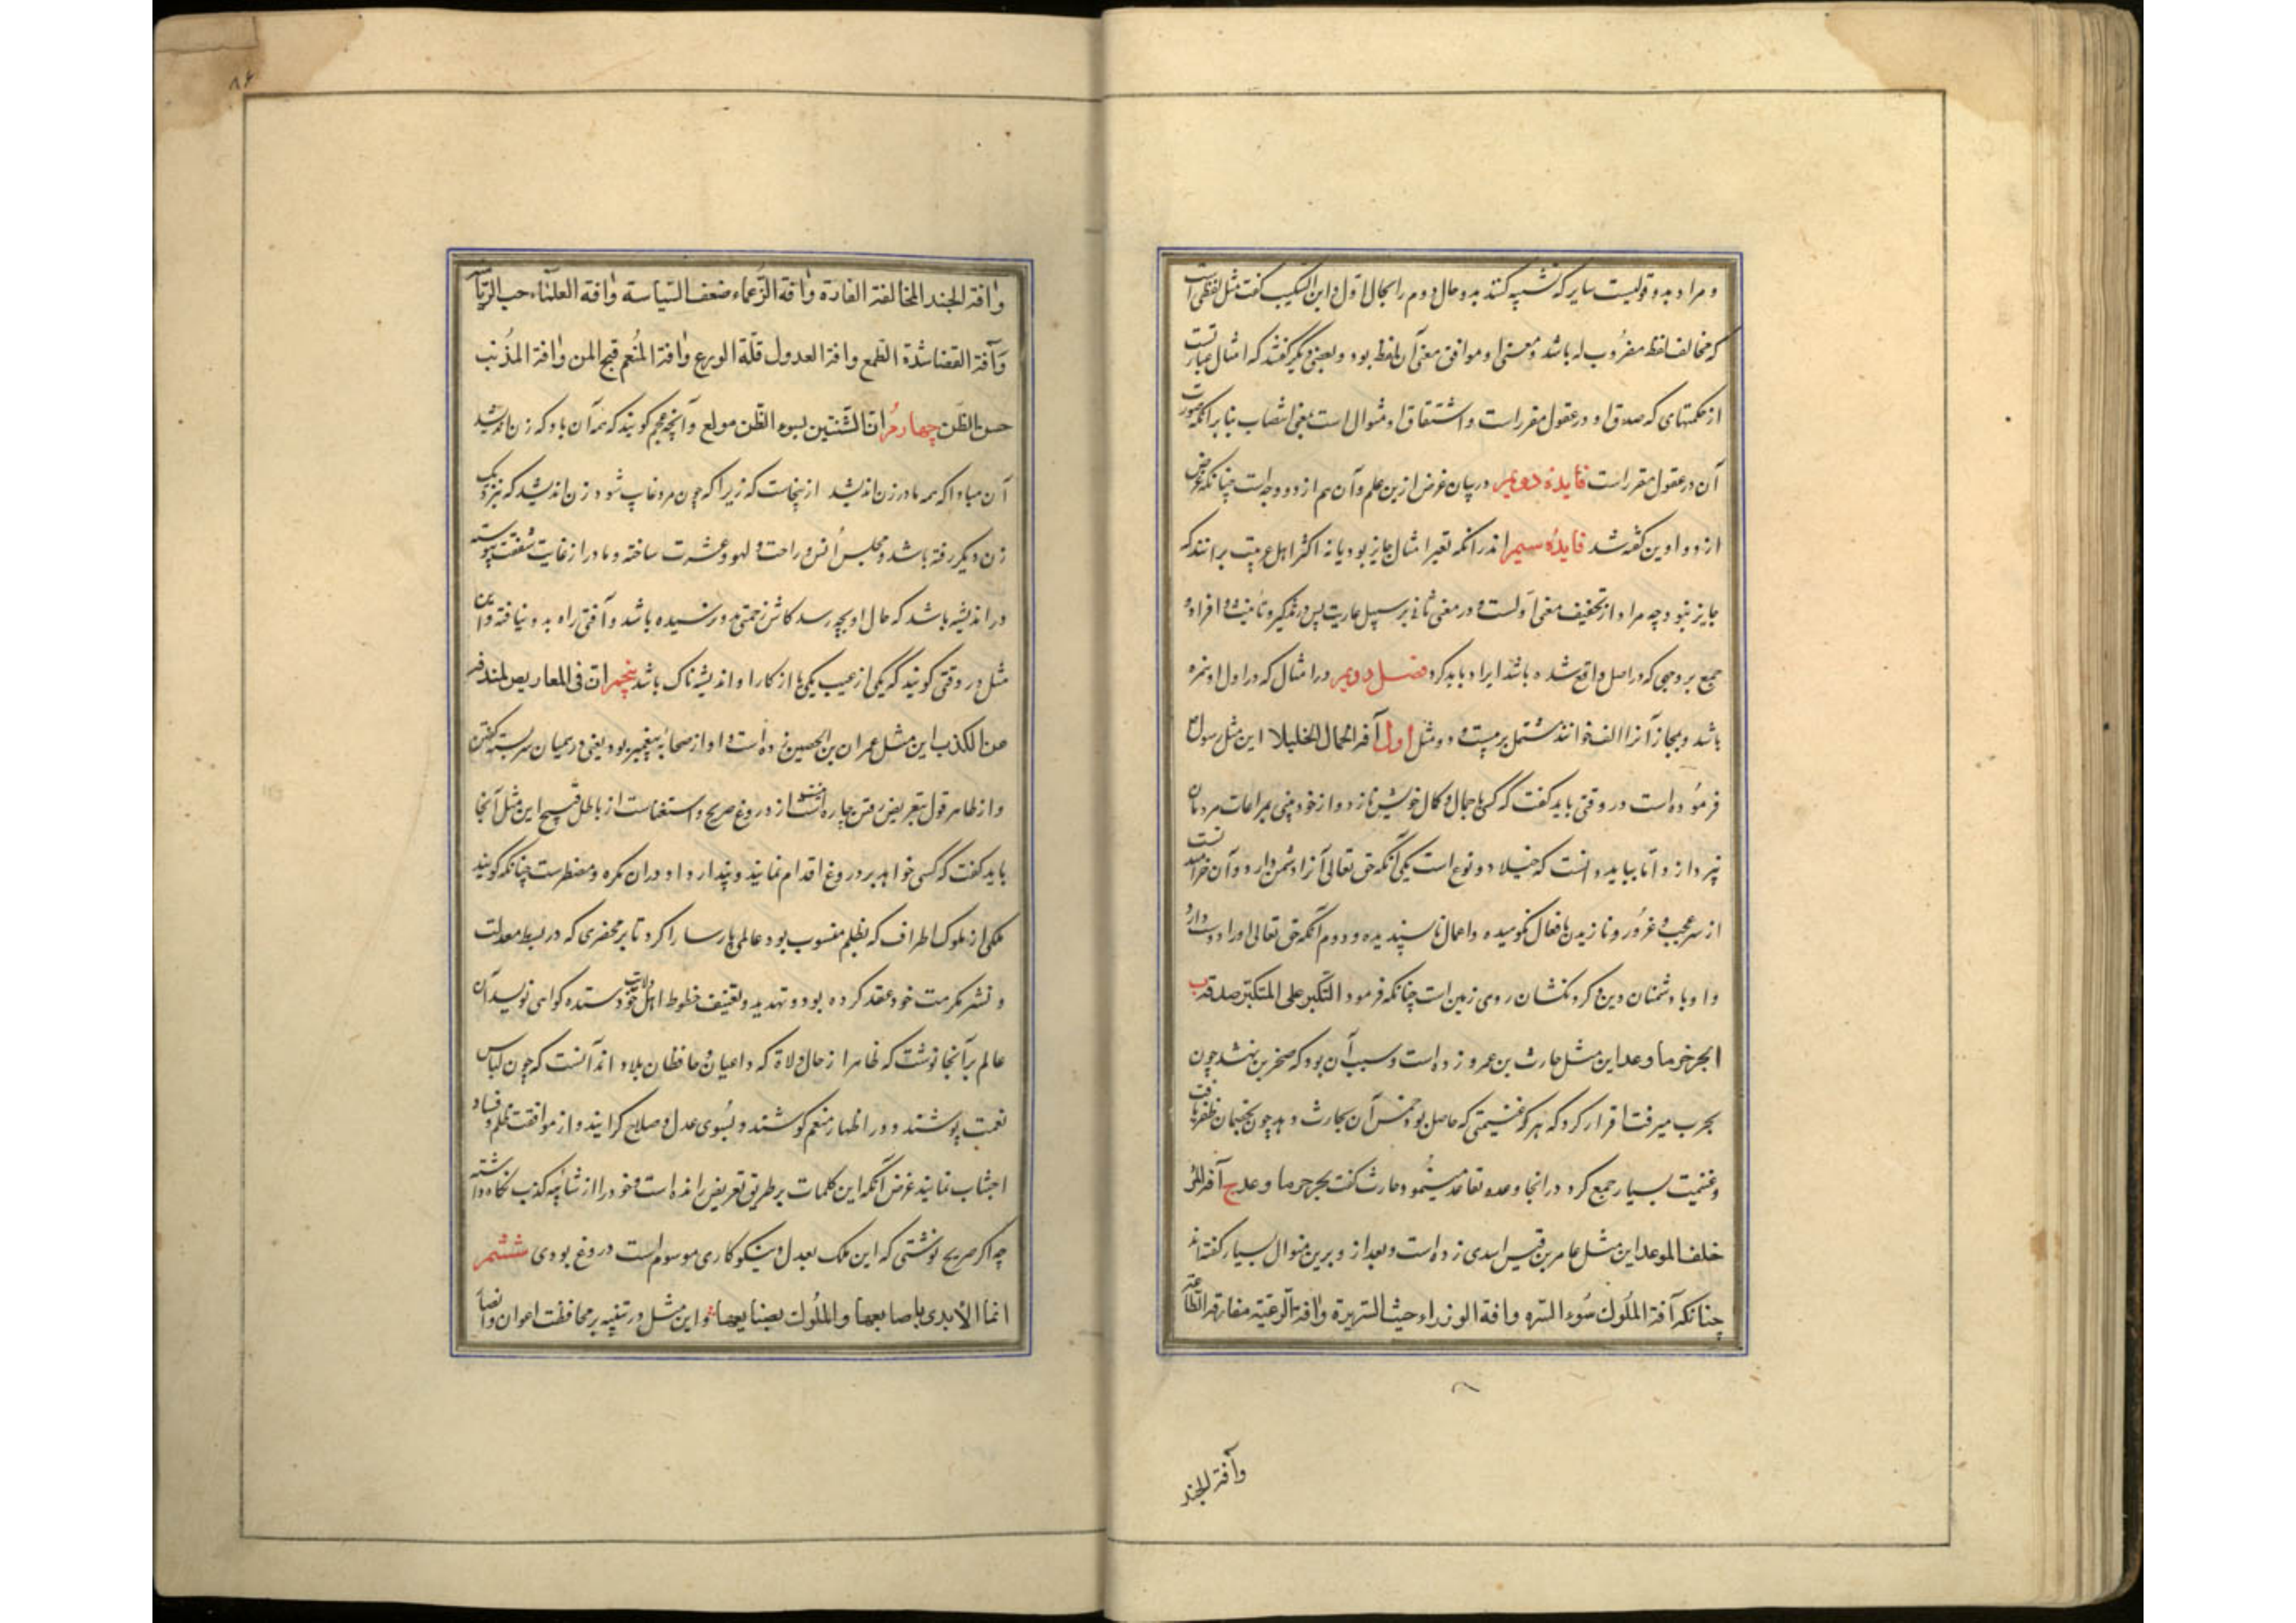 و مراد بدو قولیست سایر که تشبیه کنند بدو حال دوم را بحال اول و ابن السکیت گفت مثل لفظی است
که مخالف لفظ مضروب له باشد و معنی او موافق معنی آن لفظ بود و بعضی دیگر گفتند که امثال عبارتست
از حکمتهای که صدق او در عقول مقرر است و اشتقاق او مثوال است یعنی انتصاب بنا برانکه صورت
آن در عقول مقرر است فایده دویم در بیان غرض ازین علم و آن هم از دو وجه است چنانکه غرض
از دواوین گفته شد فایده سیم اندر انکه تغیر امثال جایز بود یا نه اکثر اهل عربیت برانند که
جایز نبود چه مراد از تخفیف معنی اولست و در معنی ثانی بر سبیل عاریت پس در تذکیر و تانیث و افراد و
جمع بر وجهی که در اصل واقع شده باشد ایراد باید کرد فصل دویم در امثال که در اول او همزه
باشد و مجاز آنرا الف خوانند مشتمل بر بیست و دو مثل اول آفة الجمال الخیلاء این مثل رسول
فرموده است در وقتی باید گفت که کسی با جمال و کمال خویش نازد و از خود بینی بمراعات مردمان
نپردازد و اما بباید دانست که خیلا دو نوع است یکی آنکه حق تعالی آنرا دشمن دارد و آن خرامیدنست
از سر عجب و غرور و نازیدن بافعال نکوهیده و اعمال ناپسندیده و دوم آنکه حق تعالی او را دوست دارد
و او با دشمنان دین و گردنکشان روی زمین است چنانکه فرمود التکبر علی المتکبر صدقه ب
انجز حر ما وعد این مثل حارث بن عمرو زده است و سبب آن بود که صخر بن نهشل چون
بحرب میرفت اقرار کرد که هر که غنیمتی که حاصل بود خمس آن بحارث دهد چون بخصمان ظفر یافت
و غنیمت بسیار جمع کرد در انجاز وعده تقاعد مینمود حارث گفت انجز حر ما وعد ج آفة المرء
خلف الموعد این مثل عامر بن قیس اسدی زده است و بعد از و برین منوال بسیار گفته‌اند
چنانکه آفة الملوك سوء السیره وافة الوزراء خبث السریرة وافة الرعیة مفارقة الطاعة
وآفة الجند
وافة الجند المخالفة القادة وافة الزعماء ضعف السیاسة وافة العلماء حب الریاسه
وآفة القضا شدة الطمع وافة العدول قلة الورع وافة المنعم قبح المن وافة المذنب
حسن الظن چهارم ان الشفیق بسوء الظن مولع و آنچه عجم گویند که نه آن باد که زن اندیشد
آن مباد که همه مادر زن اندیشد از ینجاست که زیرا که چون مرد غایب شود زن اندیشد که بنزدیک
زن دیگر رفته باشد و مجلس انس و راحت و لهو و عشرت ساخته و مادر از غایت شفقت پیوسته
در اندیشه باشد که حال او بچه رسد کاش زحمتی بدو نرسیده باشد و آفتی راه بدو نیافته و این
مثل در وقتی گویند که یکی از عیب یکی یا از کار او اندیشه ناک باشد پنجم ان فی المعاریض لمندوحة
من الکذب این مثل عمران بن الحصین زده است و او از صحابه پیغمبر بود یعنی در میان سربسته گفتن
و از ظاهر قول بتعریض رفتن چاره است از دروغ صریح و استغناست از باطل قبیح این مثل آنجا
باید گفت که کسی خواهد بر دروغ اقدام نماید و پندارد او در ان مکره و مضطرست چنانکه گویند
ملکی از ملوک اطراف که بظلم منسوب بود عالمی پارسا را کرد تا بر محضری که در بسط معدلت
و نشر مکرمت خود عقد کرده بود و تهدید و تعنیف خطوط اهل ولایت خود ستده گواهی نویسد آن
عالم بر آنجا نوشت که ظاهرا از حال ولاة که داعیان و حافظان بلاد اند آنست که چون لباس
نعمت پوشند و در اظهار منعم کوشند و بسوی عدل و صلاح گرایند و از موافقت ظلم و فساد
اجتناب نمایند غرض آنکه این کلمات بر طریق تعریض رانده است و خود را از شائبه کذب نگاه داشته
چه اگر صریح نوشتی که این ملک بعدل و نیکوکاری موسوم است دروغ بودی ششم
انما الایدی باصابعها والملوك بصنایعها و این مثل در تنبیه بر محافظت اعوان و انصار